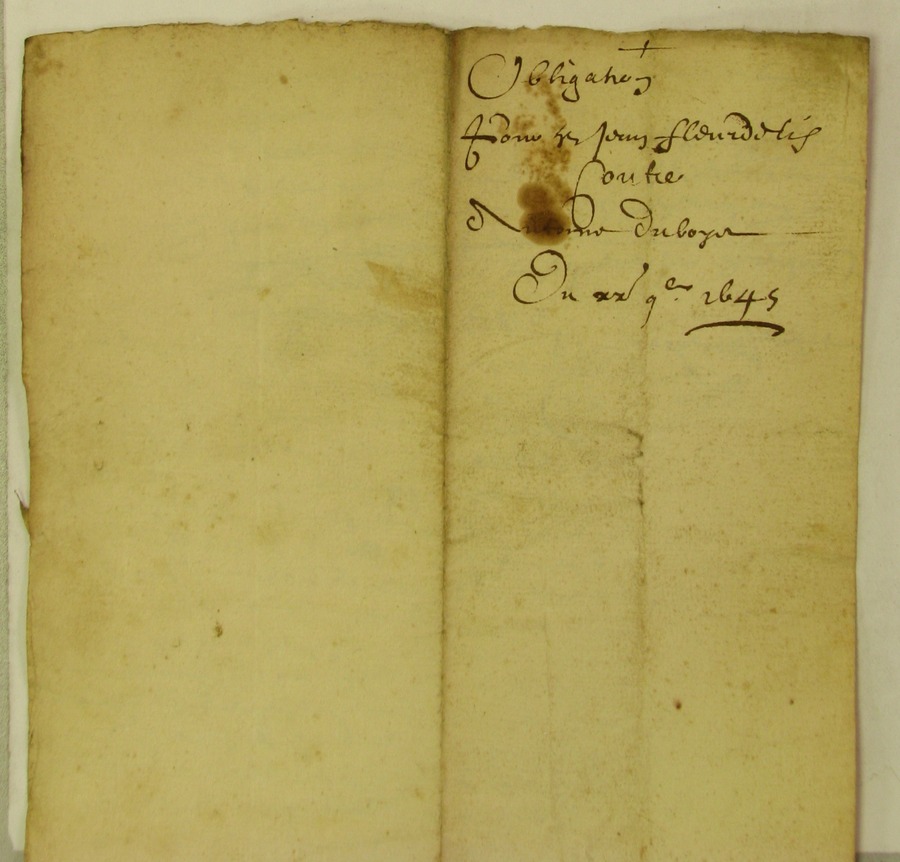 +
Obligation
Pour Sr Jean fleurdelis
Contre
Antoine Duboys
Du xxe 9er 1645